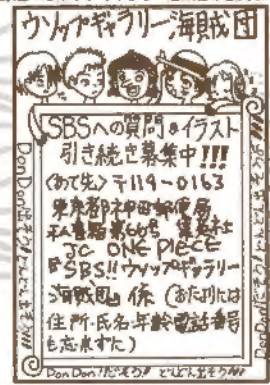 ウソップギャラリー海賊団
SBSへの質問・イラスト
引き続き募集中!!!
〈あて先〉〒119-0163
東京都神田郵便局
私書箱第66号 集英社
JC ONE PIECE
『SBS!! ウソップギャラリー
海賊団』係
住所・氏名・年齢・電話番号
も忘れずに)
DonDon出そう!
どんどん出そう!!!
DonDon!だそう!! どんどん出そう!!